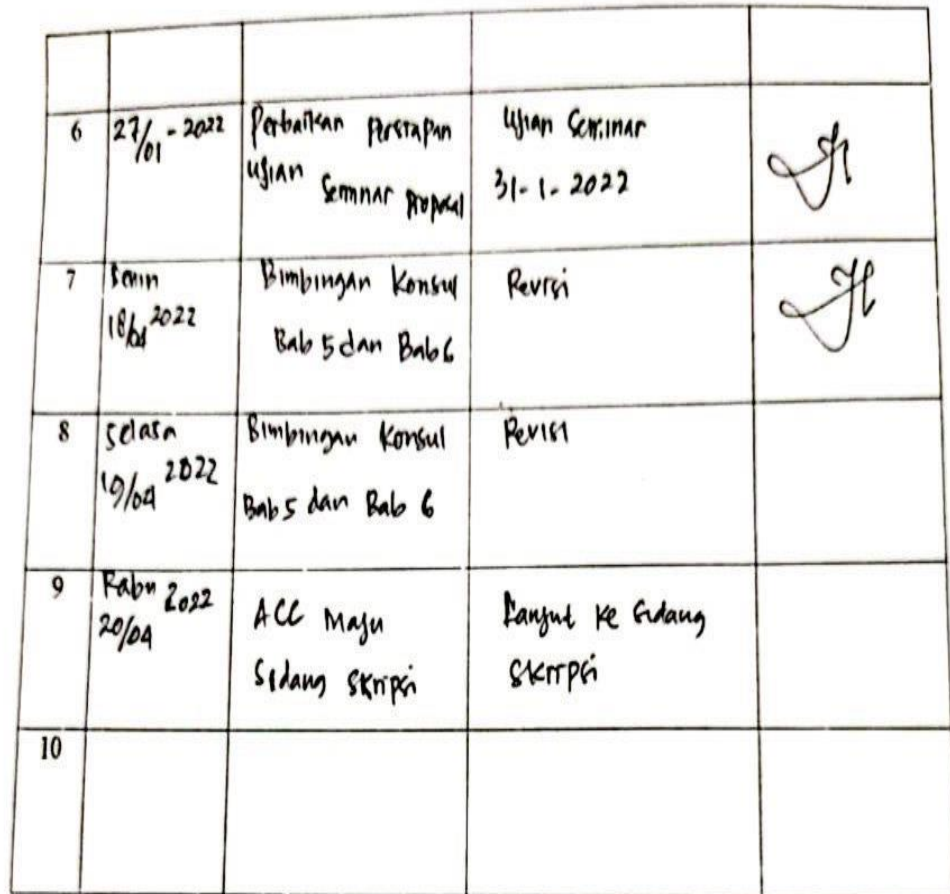 6
27/01-2022
Perbaikan Persiapan
Ujian Seminar Proposal
Ujian Seminar
31-1-2022
7
Senin
18/04 2022
Bimbingan Konsul
Bab 5 dan Bab 6
Revisi
8
Selasa
19/04 2022
Bimbingan Konsul
Bab 5 dan Bab 6
Revisi
9
Rabu 2022
20/04
ACC Maju
Sidang Skripsi
Lanjut Ke Sidang
Skripsi
10